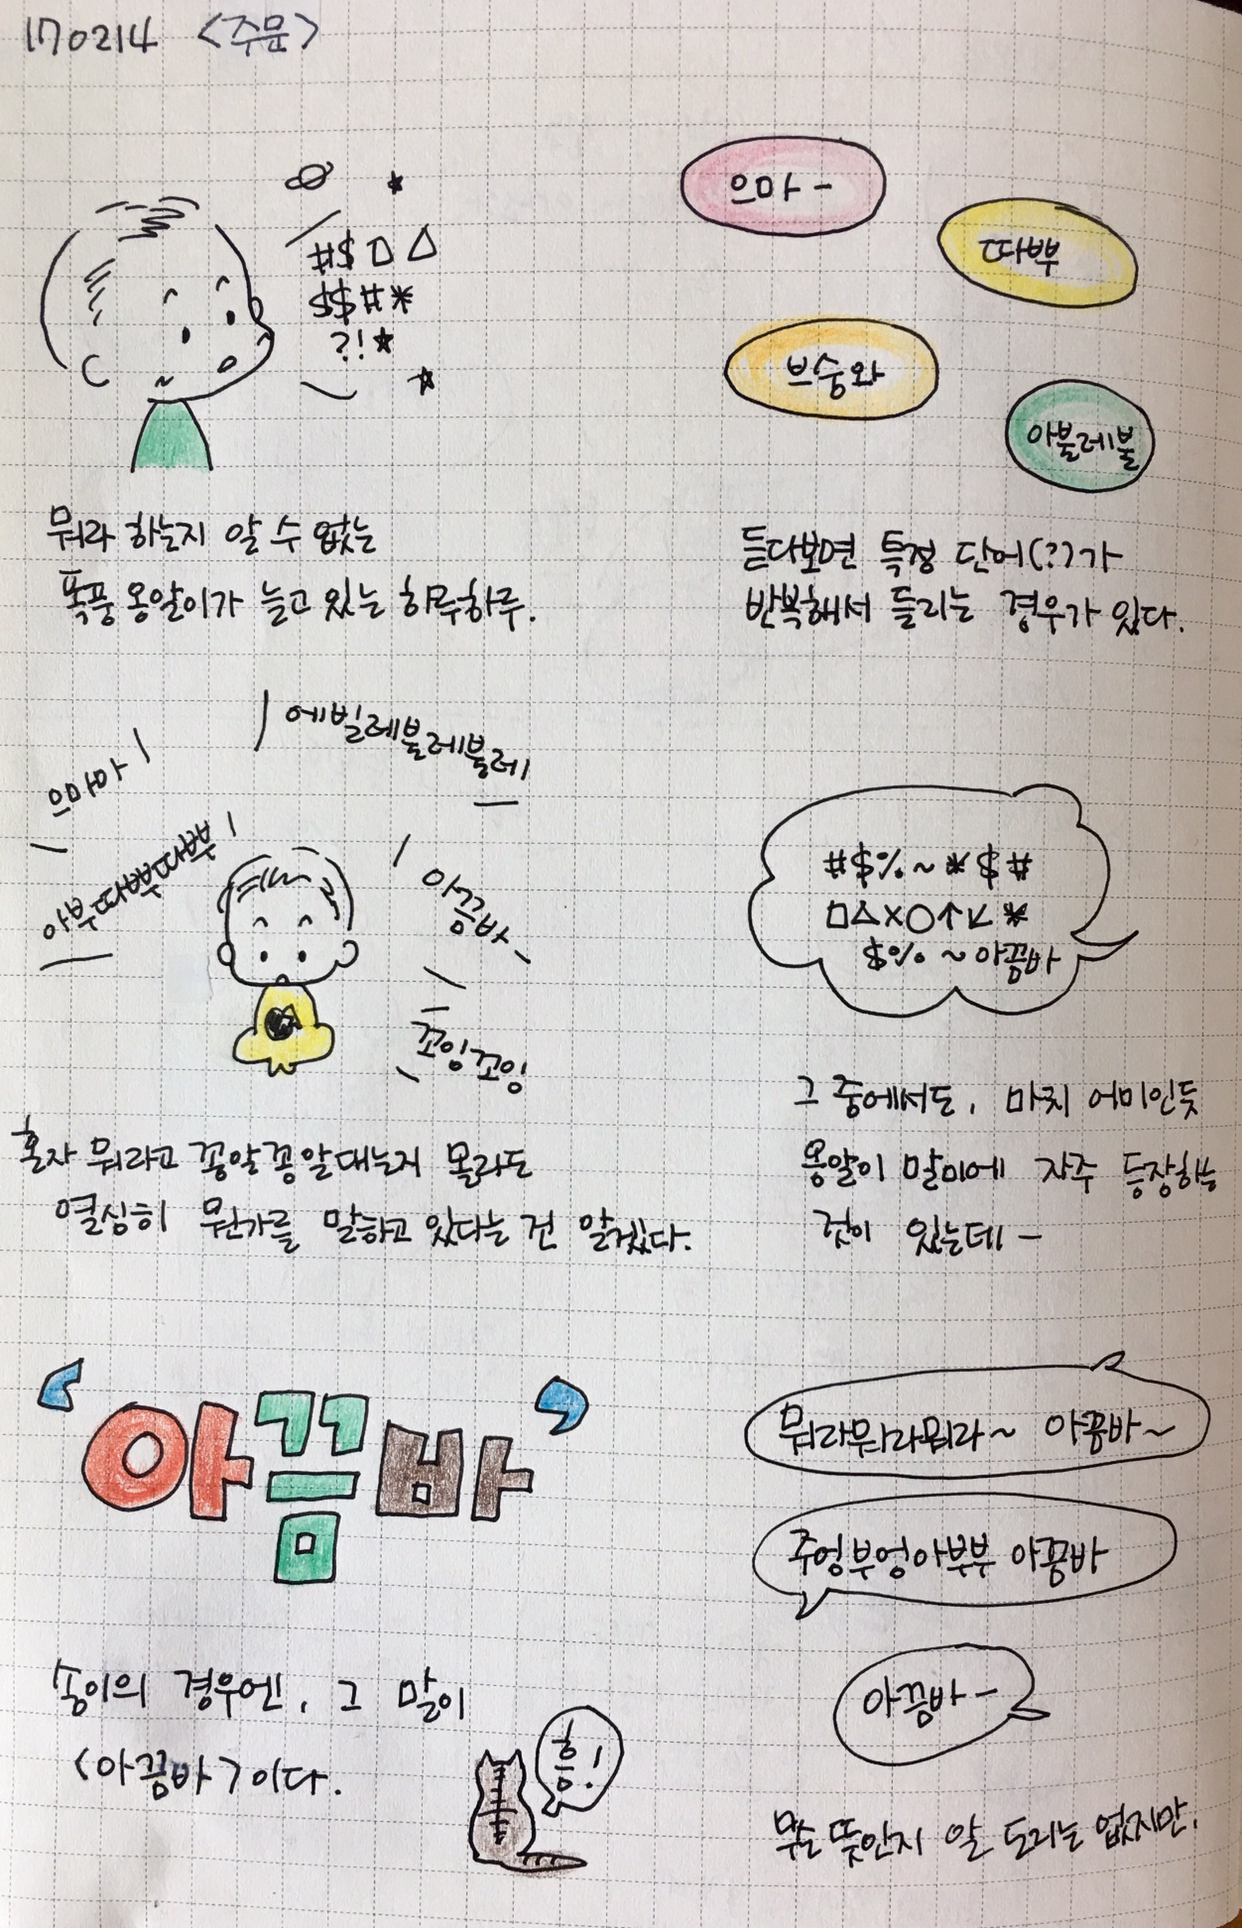 170214 <주문>
#$□△
$$#*
?!★
으마-
따뿌
브숭와
아불레불
뭐라 하는지 알 수 없는
폭풍 옹알이가 늘고 있는 하루하루.
듣다보면 특정 단어(?)가
반복해서 들리는 경우가 있다.
으마마
에빌레불레불레
아부따뿌따뿌
아끔바
꼬잉꼬잉
혼자 뭐라고 꽁알꽁알대는지 몰라도
열심히 뭔가를 말하고 있다는 건 알겠다.
#$%~*$#
□△×○↑↙*
$%~아끔바
그 중에서도, 마치 어미인듯
옹알이 말미에 자주 등장하는
것이 있는데-
'아끔바'
송이의 경우엔, 그 말이
<아끔바>이다.
흥!
뭐라뭐라뭐라~ 아끔바~
주엉부엉아부부 아끔바
아끔바-
무슨 뜻인지 알 도리는 없지만,